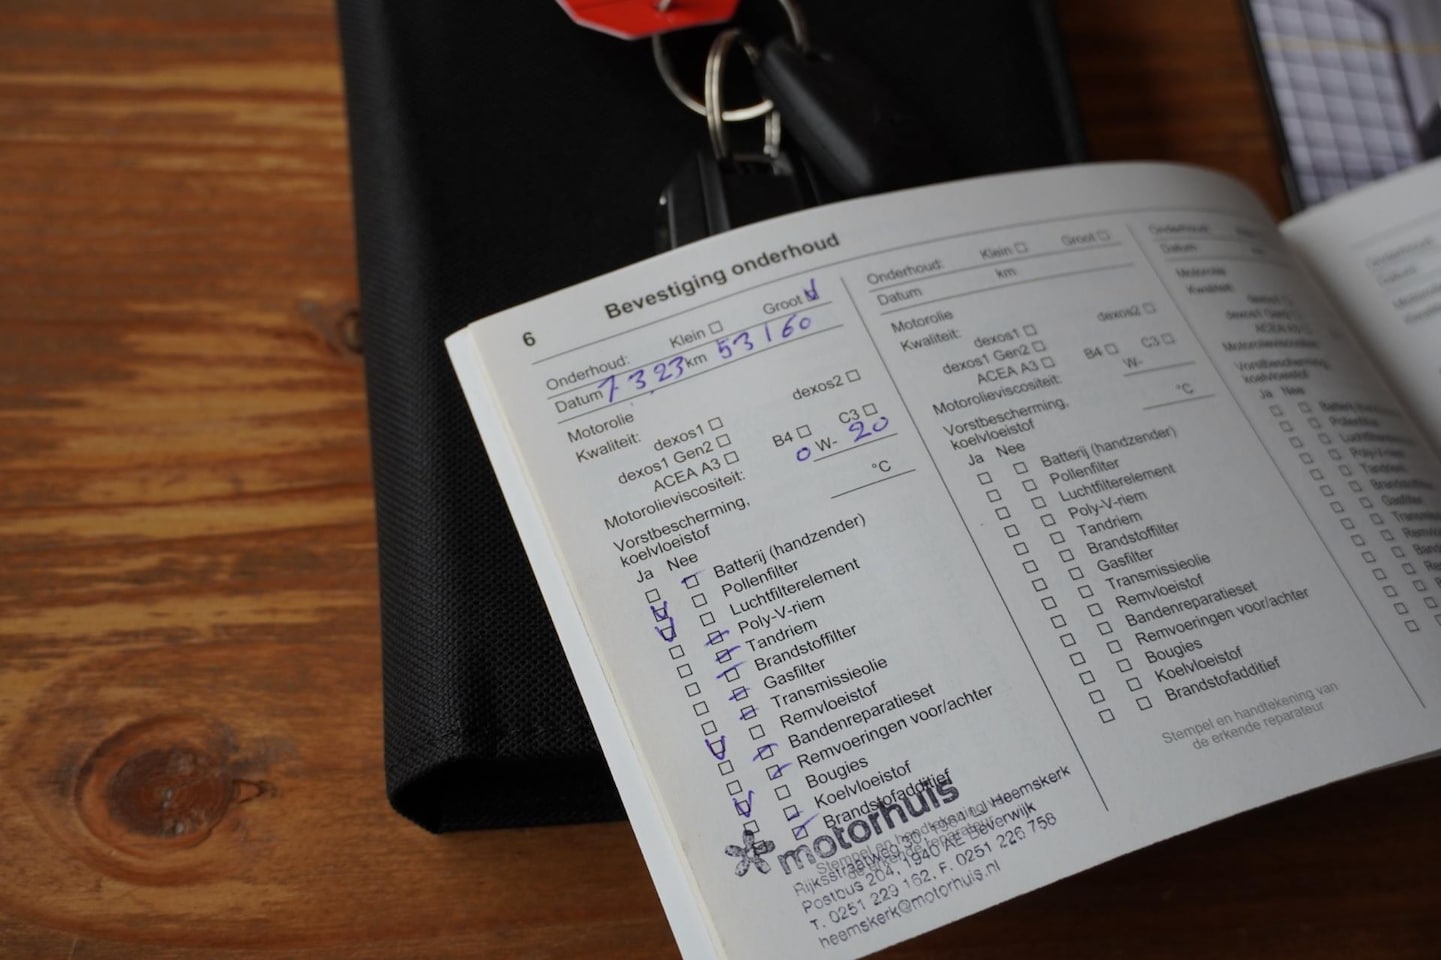 6
Bevestiging onderhoud
Onderhoud: Klein Groot
Datum 7 3 23 km 53160
Motorolie
Kwaliteit: dexos1 dexos2
dexos1 Gen2
ACEA A3 B4 C3
Motorolieviscositeit: 0 W- 20
Vorstbescherming,
koelvloeistof °C
Ja Nee
Batterij (handzender)
Pollenfilter
Luchtfilterelement
Poly-V-riem
Tandriem
Brandstoffilter
Gasfilter
Transmissieolie
Remvloeistof
Bandenreparatieset
Remvoeringen voor/achter
Bougies
Koelvloeistof
Brandstofadditief
Stempel en handtekening van
de erkende reparateur
motorhuis
Rijksstraatweg 30, 1964 Heemskerk
Postbus 204, 1940 AE Beverwijk
T. 0251 229 162, F. 0251 226 758
heemskerk@motorhuis.nl
Onderhoud: Klein Groot
Datum km
Motorolie
Kwaliteit: dexos1 dexos2
dexos1 Gen2
ACEA A3 B4 C3
Motorolieviscositeit: W-
Vorstbescherming,
koelvloeistof °C
Ja Nee
Batterij (handzender)
Pollenfilter
Luchtfilterelement
Poly-V-riem
Tandriem
Brandstoffilter
Gasfilter
Transmissieolie
Remvloeistof
Bandenreparatieset
Remvoeringen voor/achter
Bougies
Koelvloeistof
Brandstofadditief
Stempel en handtekening van
de erkende reparateur
Onderhoud:
Datum
Motorolie
Kwaliteit:
dexos1
dexos1 Gen2
ACEA A3
Motorolieviscositeit:
Vorstbescherming,
koelvloeistof
Ja Nee